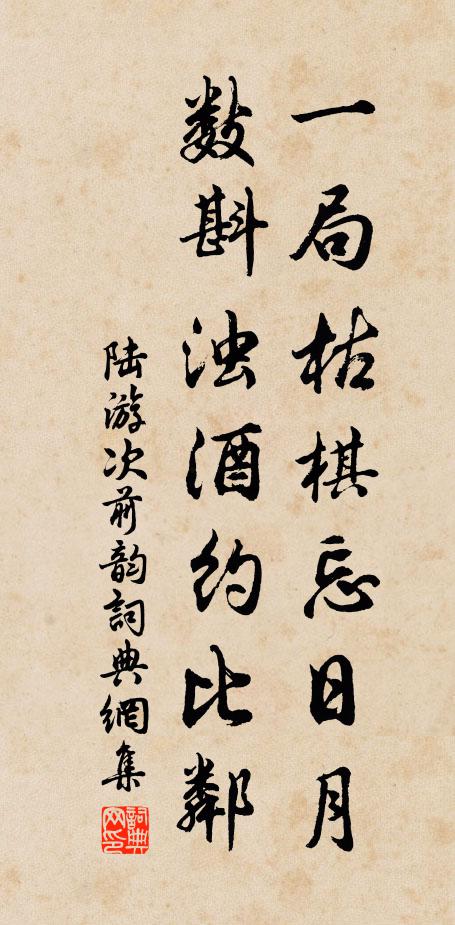 一局枯棋忘日月
数斟浊酒约比鄰
陆游次前韵詞典網集
詞典网印